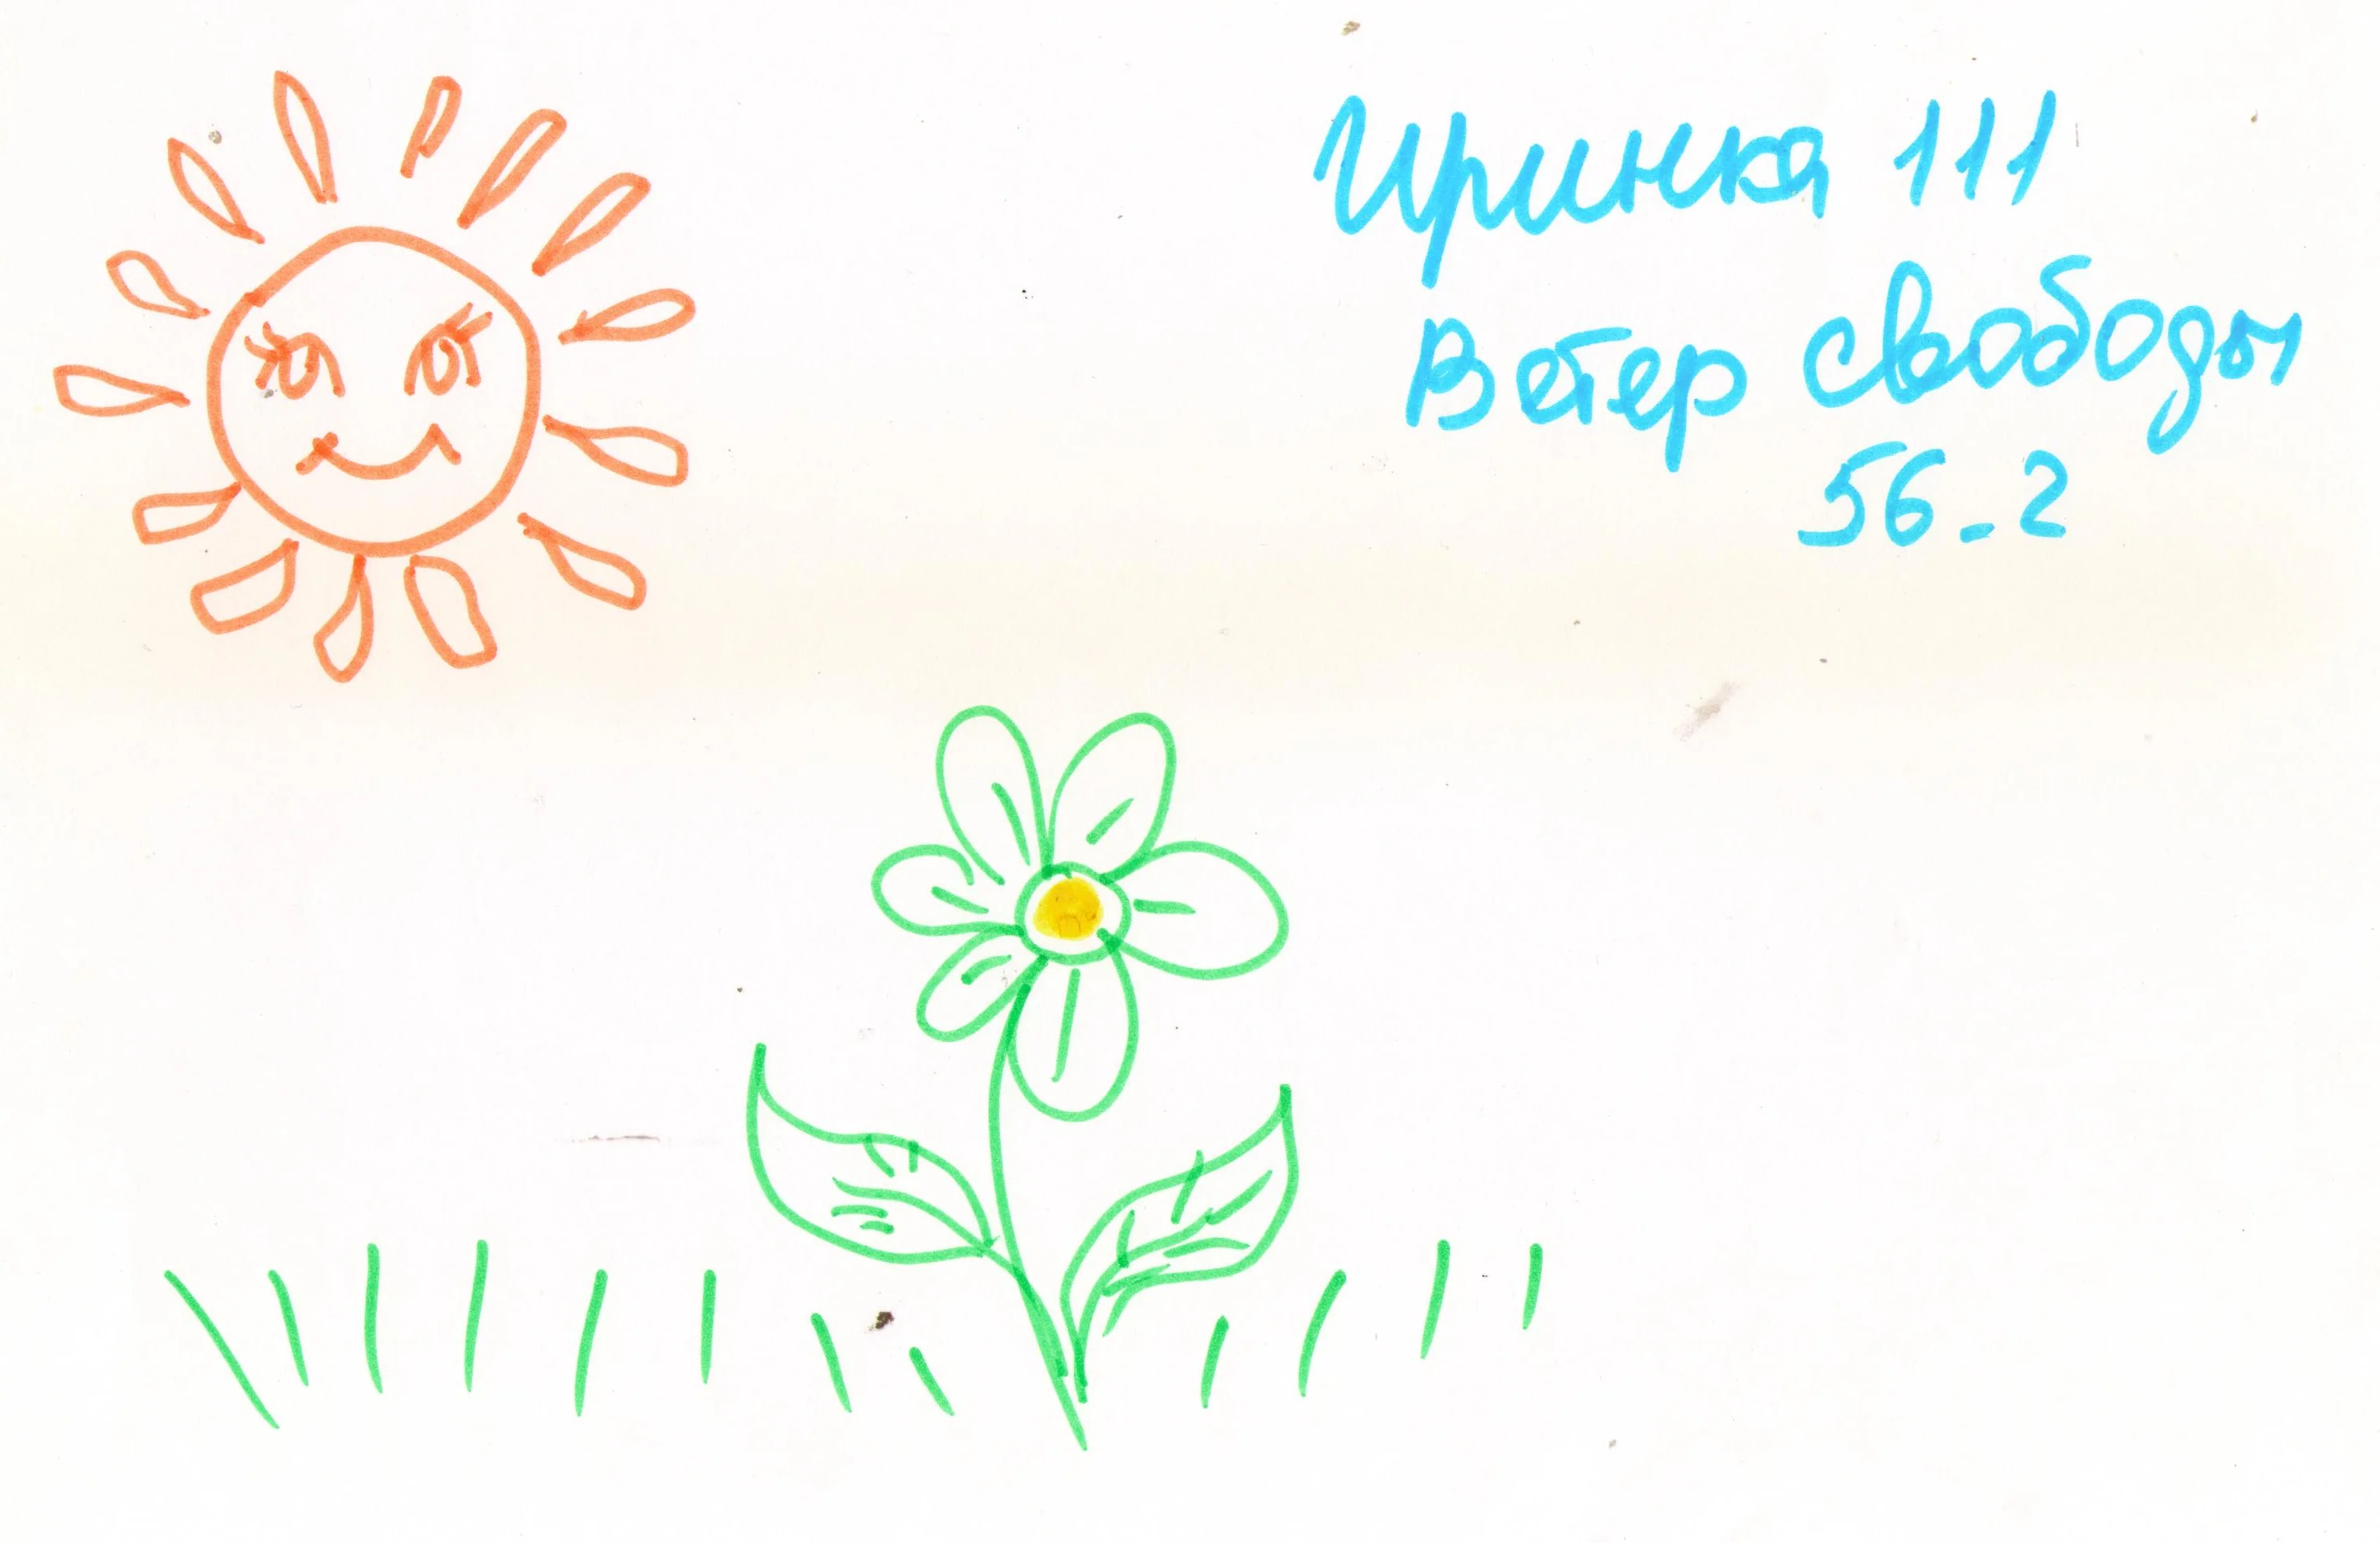 Иринка 111
Ветер свободы
56-2